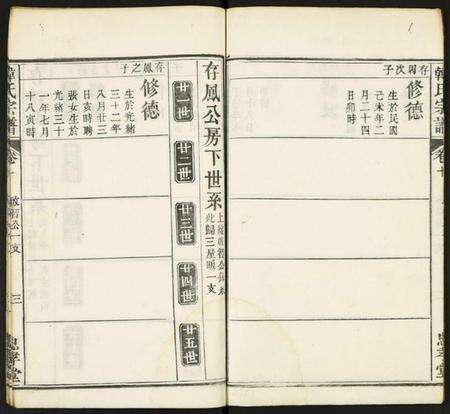 韓氏宗譜
卷十
忠孝堂
存周次子
修德
生於民國
己未年二
月二十四
日卯時
存鳳公房下世系
此歸三屋畈一支
廿一世
廿二世
廿三世
廿四世
廿五世
存鳳之子
修德
生於光緒
三十二年
八月廿三
日亥時聘
張女生於
光緒三十
一年七月
十八寅時
韓氏宗譜
卷十
公一支
三
忠孝堂